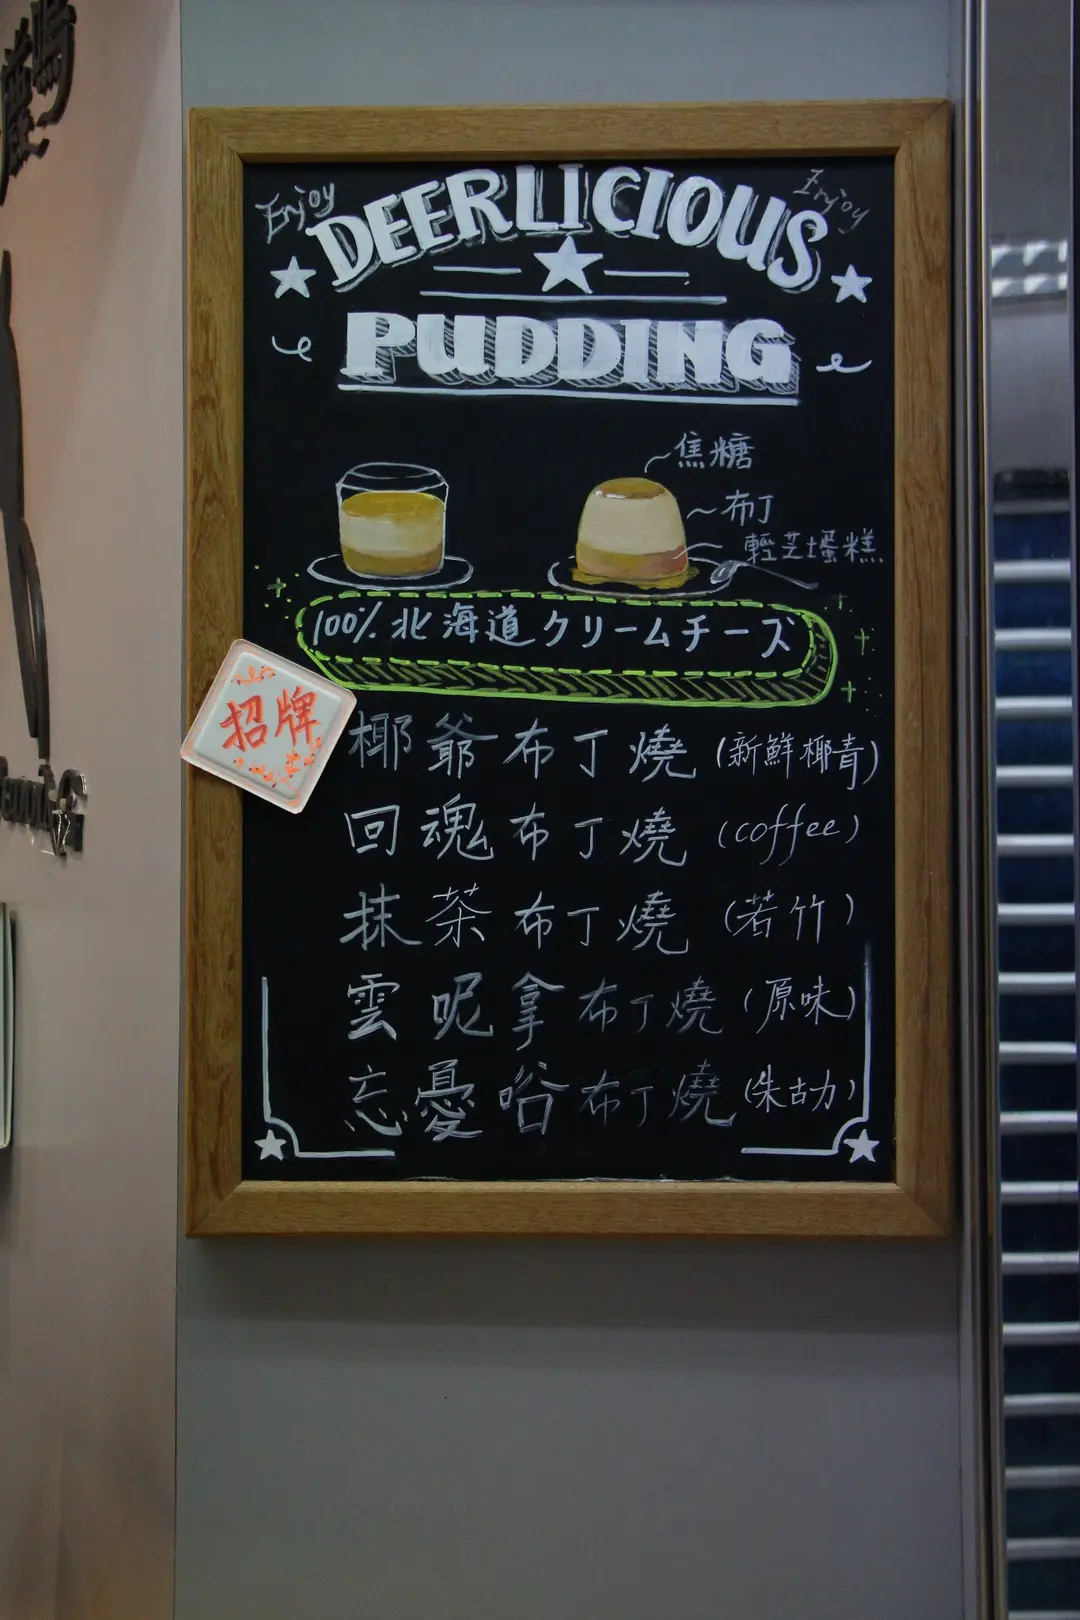 Enjoy
Enjoy
DEERLICIOUS
PUDDING
焦糖
布丁
輕芝士蛋糕
100% 北海道クリームチーズ
招牌
椰爺布丁燒 (新鮮椰青)
回魂布丁燒 (coffee)
抹茶布丁燒 (若竹)
雲呢拿布丁燒 (原味)
忘憂唂布丁燒 (朱古力)